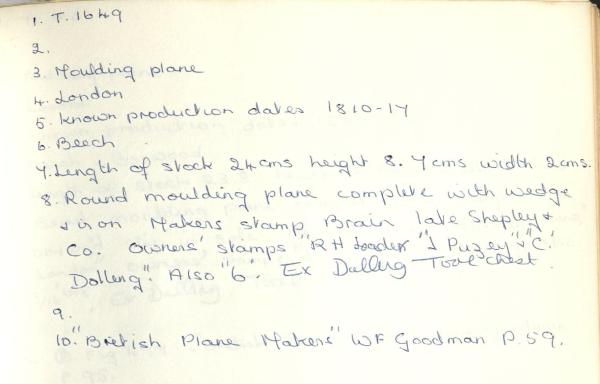 1. T. 1649
2.
3. Moulding plane
4. London
5. Known production dates 1810-17
6. Beech
7. Length of stock 24cms height 8.7cms width 2cms.
8. Round moulding plane complete with wedge
& iron Makers stamp Brain late Shepley &
Co. Owners' stamps "R H" "J Puzey" & "C.
Dolleng". Also "6". Ex Dalleng Tool chest.
9.
10. "British Plane Makers" WF Goodman P.59.